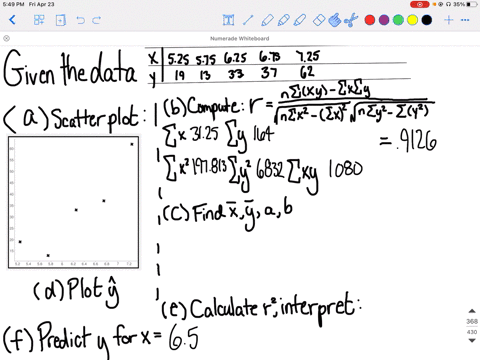 5:49 PM Fri Apr 23
35%
Numerade Whiteboard
Given the data
x 5.25 5.75 6.25 6.75 7.25
y 19 13 33 37 62
(a) Scatterplot:
(b) Compute: r = nΣ(xy) - ΣxΣy / √nΣx² - (Σx)² √nΣy² - Σ(y²)
= .9126
Σx 31.25 Σy 164
Σx² 197.813 Σy² 6832 Σxy 1080
(c) Find x̄, ȳ, a, b
(d) Plot ŷ
(e) Calculate r², interpret:
(f) Predict y for x = 6.5
368
430